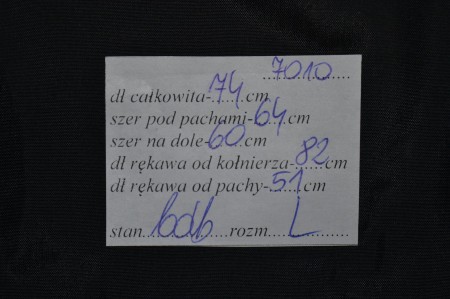 ...7010...
dł całkowita-..74..cm
szer pod pachami-64..cm
szer na dole-60...cm
dł rękawa od kołnierza-..82...cm
dł rękawa od pachy-..51..cm
stan...bdb...rozm...L...